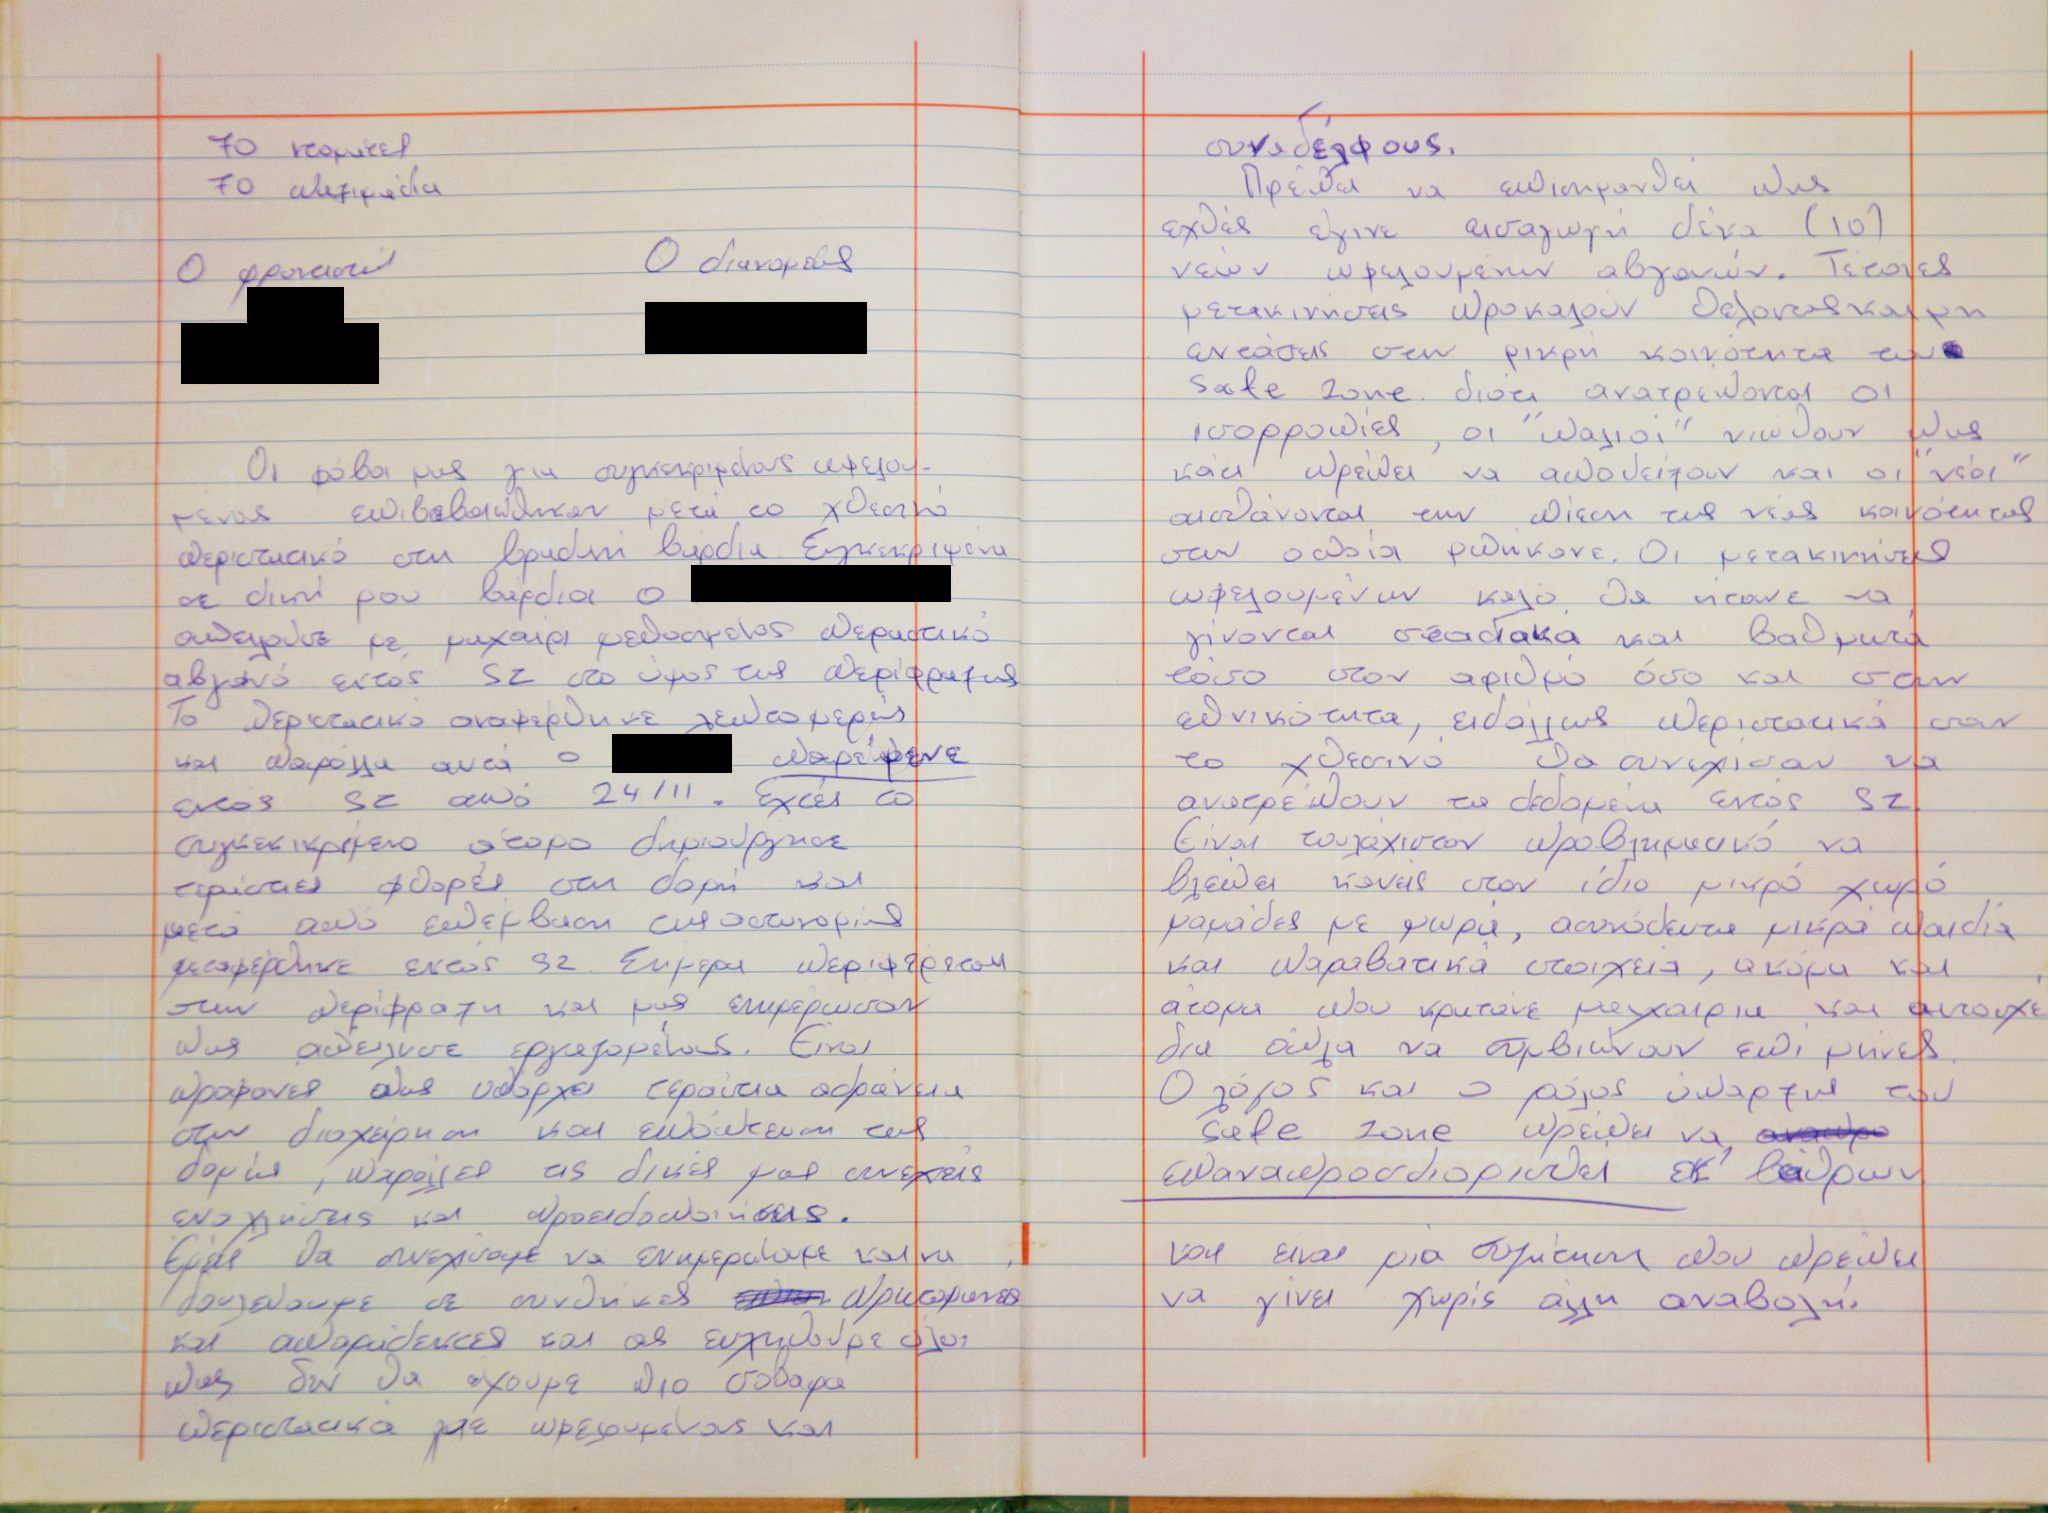 70 ντομάτες
70 παξιμάδια
Ο φροντιστής
Ο διανομέας
Οι φόβοι μας για συγκεκριμένους ωφελου-
μένους επιβεβαιώθηκαν μετά το χθεσινό
περιστατικό στη βραδινή βάρδια. Συγκεκριμένα
σε δική μου βάρδια ο
απειλούσε με μαχαίρι μεθυσμένος περαστικό
αβγανό εντός SZ στο ύψος της περίφραξης
Το περιστατικό αναφέρθηκε λεπτομερώς
και παρόλα αυτά ο παρέμενε
εντός SZ από 24/11. Εχτές το
συγκεκικριμένο άτομο δημιούργησε
τεράστιες φθορές στη δομή και
μετά από επέμβαση της αστυνομίας
μεταφέρθηκε εκτός SZ. Σήμερα περιφέρεται
στην περίφραξη και μας ενημέρωσαν
πως απείλησε εργαζομένους. Είναι
προφανές πως υπάρχει τεράστια αδράνεια
στην διαχείρηση και εποπτευση της
δομής, παρόλες τις δικές μας συνεχείς
ενοχλήσεις και προειδοποιήσεις.
Εμείς θα συνεχίσουμε να ενημερώνουμε και να
δουλεύουμε σε συνθήκες πρωτοφανες
και απαράδεκτες και ας ευχηθούμε όλοι
πως δεν θα έχουμε πιο σοβαρα
περιστατικά με ωφελουμένους και
συναδέλφους.
Πρέπει να επισημανθεί πως
εχθές έγινε εισαγωγή δέκα (10)
νέων ωφελουμένων αβγανών. Τέτοιες
μετακινήσεις προκαλούν θέλοντας και μη
εντάσεις στην μικρή κοινότητα του
safe zone διότι ανατρέπονται οι
ισορροπίες, οι "παλιοί" νιώθουν πως
κάτι πρέπει να αποδείξουν και οι "νέοι"
αισθάνονται την πίεση της νέας κοινότητας
στην οποία μπήκανε. Οι μετακινήσεις
ωφελουμένων καλό θα ήτανε να
γίνονται σταδιακά και βαθμιαία
τόσο στον αριθμό όσο και στην
εθνικότητα, ειδάλλως περιστατικά σαν
το χθεσινό θα συνεχισουν να
ανατρέπουν τα δεδομένα εντός SZ.
Είναι τουλάχιστον προβληματικό να
βλέπει κανείς στον ίδιο μικρό χώρο
μαμάδες με μωρά, ασυνόδευτα μικρά παιδιά
και παραβατικά στοιχεία, ακόμα και
άτομα που κρατάνε μαχαίρια και αυτοσχέ
δια όπλα να συμβιώνουν επι μήνες.
Ο λόγος και ο ρόλος ύπαρξης του
safe zone πρέπει να
επαναπροσδιοριστεί εκ βάθρων
και ειναι μια συζήτηση που πρέπει
να γίνει χωρίς άλλη αναβολή.